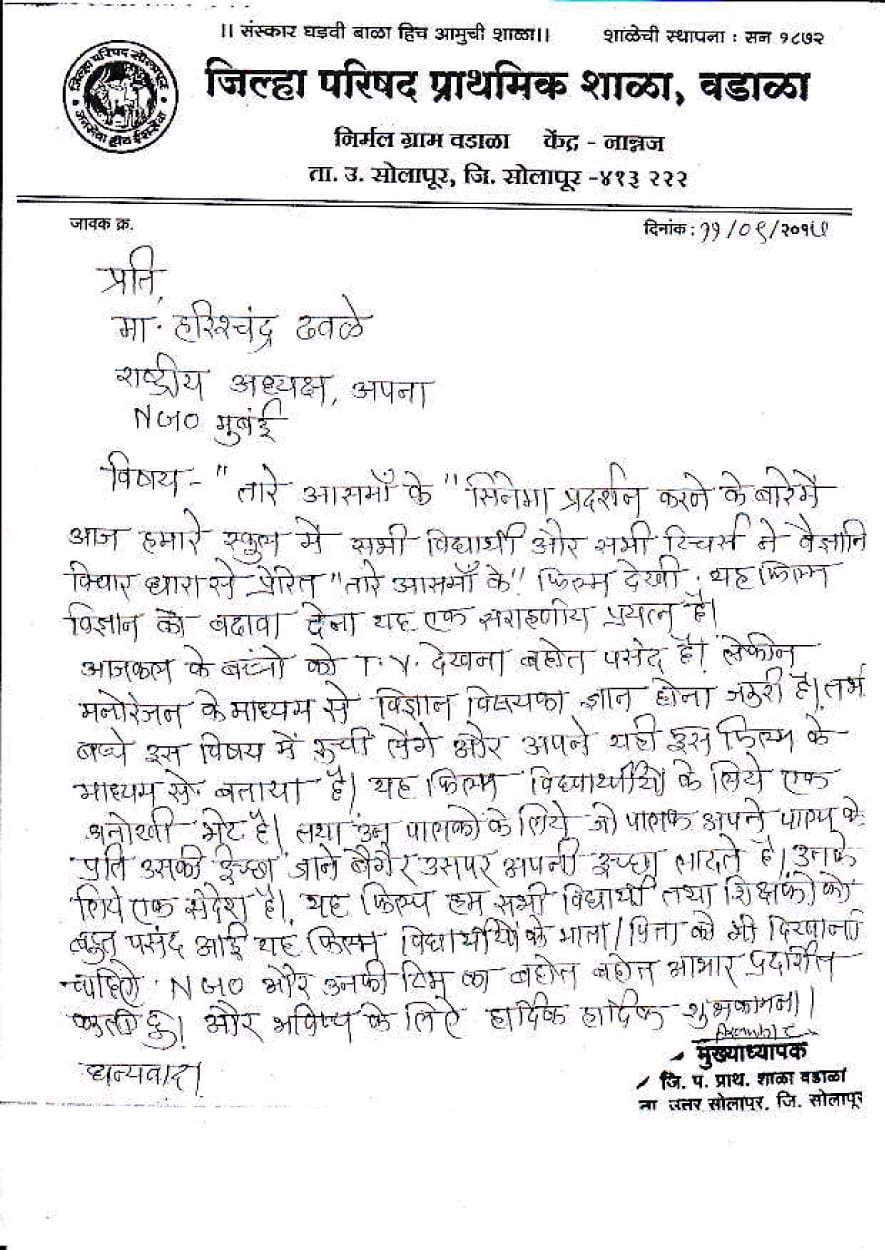 ।। संस्कार घडवी बाळा हिच आमुची शाळा।। शाळेची स्थापना : सन १८७२
जिल्हा परिषद सोलापूर
जनसेवा हीच ईशसेवा
जिल्हा परिषद प्राथमिक शाळा, वडाळा
निर्मल ग्राम वडाळा केंद्र - नान्नज
ता. उ. सोलापूर, जि. सोलापूर -४१३ २२२
जावक क्र. दिनांक : ११/०९/२०१५
प्रति,
मा. हरिश्चंद्र ढवळे
राष्ट्रीय अध्यक्ष, अपना
NGO मुबंई
विषय - "तारे आसमाँ के" सिनेमा प्रदर्शन करने के बारेमे
आज हमारे स्कुल मे सभी विद्यार्थी और सभी टिचर्स ने वैज्ञानि
विचार धारा से प्रेरित "तारे आसमाँ के" फिल्म देखी. यह फिल्म
विज्ञान को बढावा देना यह एक सराहणीय प्रयत्न है।
आजकल के बच्चो को T.V. देखना बहोत पसंद है। लेकीन
मनोरंजन के माध्यम से विज्ञान विषयका ज्ञान होना जरुरी है। तभी
बच्चे इस विषय में रुची लेंगे और अपने यही इस फिल्म के
माध्यम से बताया है। यह फिल्म विद्यार्थीयों के लिये एक
अनोखी भेट है। तथा उन पालको के लिये जो पालक अपने पाल्य के
प्रति उसकी इच्छा जाने बैगैर उसपर अपनी इच्छा लादते है। उनके
लिये एक संदेश है। यह फिल्म हम सभी विद्यार्थी तथा शिक्षको को
बहुत पसंद आई यह फिल्म विद्यार्थीयों के माता/पिता को भी दिखाना
चाहिऐ. NGO और उनकी टिम का बहोत बहोत आभार प्रदर्शित
करती हु। और भविष्य के लिऐ हार्दिक हार्दिक शुभकामना।
धन्यवाद।
मुख्याध्यापक
जि. प. प्राथ. शाळा वडाळा
ता उत्तर सोलापूर, जि. सोलापूर